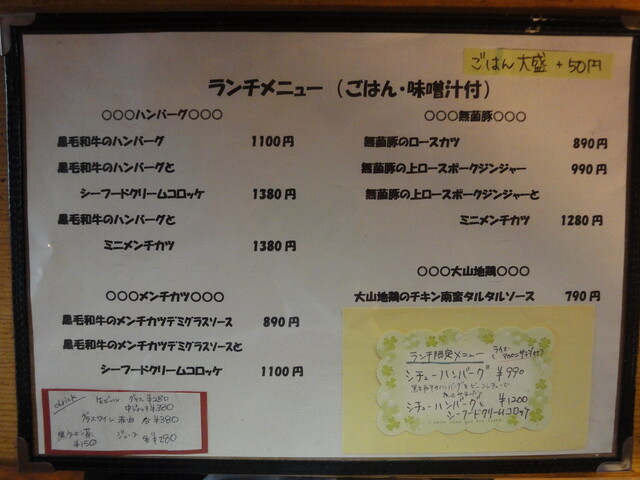 ごはん大盛 +50円
ランチメニュー（ごはん・味噌汁付）
○○○ハンバーグ○○○
黒毛和牛のハンバーグ 1100円
黒毛和牛のハンバーグと
シーフードクリームコロッケ 1380円
黒毛和牛のハンバーグと
ミニメンチカツ 1380円
○○○メンチカツ○○○
黒毛和牛のメンチカツデミグラスソース 890円
黒毛和牛のメンチカツデミグラスソースと
シーフードクリームコロッケ 1100円
○○○無菌豚○○○
無菌豚のロースカツ 890円
無菌豚の上ロースポークジンジャー 990円
無菌豚の上ロースポークジンジャーと
ミニメンチカツ 1280円
○○○大山地鶏○○○
大山地鶏のチキン南蛮タルタルソース 790円
drink 生ビール グラス¥280
中ジョッキ¥380
グラスワイン 赤・白 各¥380
黒ウーロン茶 ¥150
ジュース 各¥280
ランチ限定メニュー
シチューハンバーグ ¥990
シチューハンバーグと ¥1200
シーフードクリームコロッケ